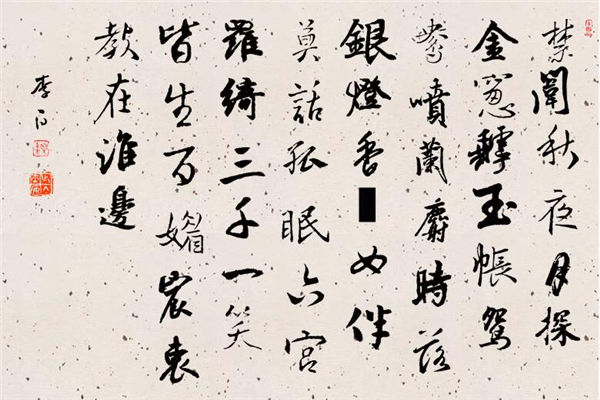 禁闈秋夜月探
金窻罅玉帳鴛
鴦噴蘭麝時落
銀燈香■女伴
莫話孤眠六宮
羅綺三千一笑
皆生百媚宸衷
教在誰邊
李白